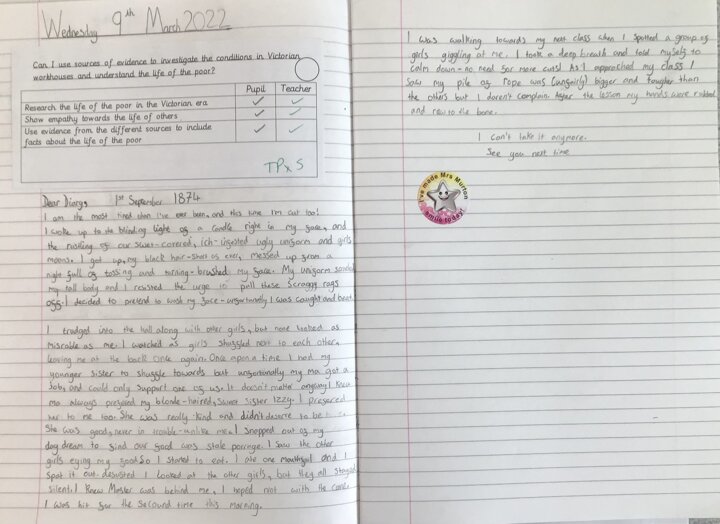 Wednesday 9th March 2022
Can I use sources of evidence to investigate the conditions in Victorian
workhouses and understand the life of the poor?
Pupil Teacher
Research the life of the poor in the Victorian era ✓ ✓
Show empathy towards the life of others ✓ ✓
Use evidence from the different sources to include ✓ ✓
facts about the life of the poor
TPx5
Dear Diary, 1st September 1874
I am the most tired than I've ever been, and this time I'm cut too!
I woke up to the blinding light of a candle right in my face, and
the rustling of our sweat-covered, ich-ingested ugly uniform and girls
moans. I got up, my black hair-short as ever, messed up from a
night full of tossing and turning-brushed my face. My uniform
my tall body and I resisted the urge to pull these scraggy rags
off. I decided to pretend to wash my face-unfortionally I was caught and beat.
I trudged into the hall along with other girls, but none looked as
misrable as me. I watched as girls shuffled next to each other,
leaving me at the back once again. Once upon a time I had my
younger sister to shuffle towards but unfortionally my ma got a
Job, and could only support one of us. It doesn't matter anyway I knew
ma always prefered my blonde-haired, sweet sister Izzy. I prefered
her to me too. She was really kind and didn't deserve to be
She was good, never in trouble-unlike me. I snapped out of my
day dream to find our food was stale porrige. I saw the other
girls eying my food so I started to eat. I ate one mouthful and I
spat it out. desusted I looked at the other girls, but they all stayed
silent. I knew Master was behind me, I hoped not with the cane.
I was hit for the second time this morning.
I was walking towards my next class when I spotted a group of
girls giggling at me. I took a deep breath and told myself to
calm down-no need for more cuts! As I approached my class I
saw my pile of rope was (unfairly) bigger and tougher than
the others but I darent complain. After the lesson my hands were robbed
and raw to the bone.
I can't take it anymore.
See you next time
I've made Mrs Murton
smile today!